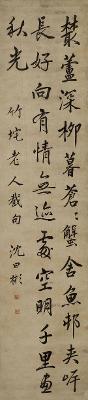 叢蘆深柳暮蒼〻蟹舍魚邨夾岸
長好向有情無迹處空明千里畫
秋光
竹垞老人截句 沈曰彬